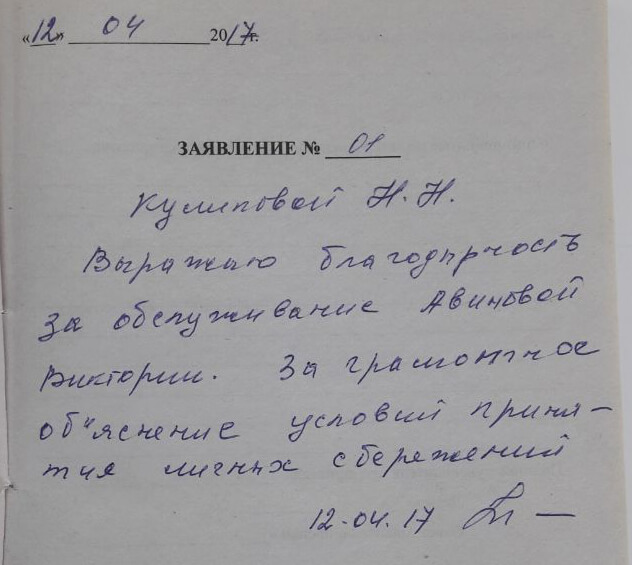 «12» 04 2017г.
ЗАЯВЛЕНИЕ № 01
Кулиповой Н.Н.
Выражаю благодарность
за обслуживание Авиновой
Виктории. За грамотное
об"яснение условий приня-
тия личных сбережений
12.04.17